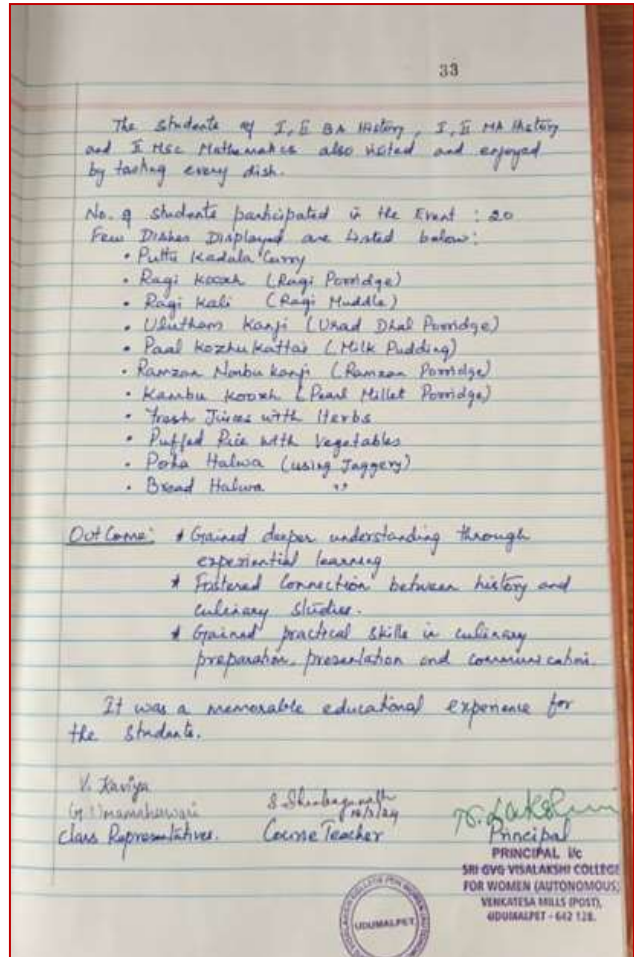 33
The students of I, II BA History, I, II MA History
and II Msc Mathematics also visited and enjoyed
by tasting every dish.
No. of students participated in the Event : 20
Few Dishes Displayed are listed below:
• Puttu Kadala Curry
• Ragi Koozh (Ragi Porridge)
• Ragi Kali (Ragi Muddle)
• Ulutham Kanji (Urad Dhal Porridge)
• Paal Kozhukattai (Milk Pudding)
• Ramzan Nonbu kanji (Ramzan Porridge)
• Kambu Koozh (Pearl Millet Porridge)
• Fresh Juices with Herbs
• Puffed Rice with Vegetables
• Poha Halwa (using Jaggery)
• Bread Halwa ,,
Outcome: * Gained deeper understanding through
experiential learning
* Fostered Connection between history and
culinary studies.
* Gained practical skills in culinary
preparation, presentation and communication.
It was a memorable educational experience for
the students.
V. Kaviya
G. Umamaheswari
Class Representatives.
Course Teacher
Principal
PRINCIPAL i/c
SRI GVG VISALAKSHI COLLEGE
FOR WOMEN (AUTONOMOUS)
VENKATESA MILLS (POST),
UDUMALPET - 642 128.
UDUMALPET